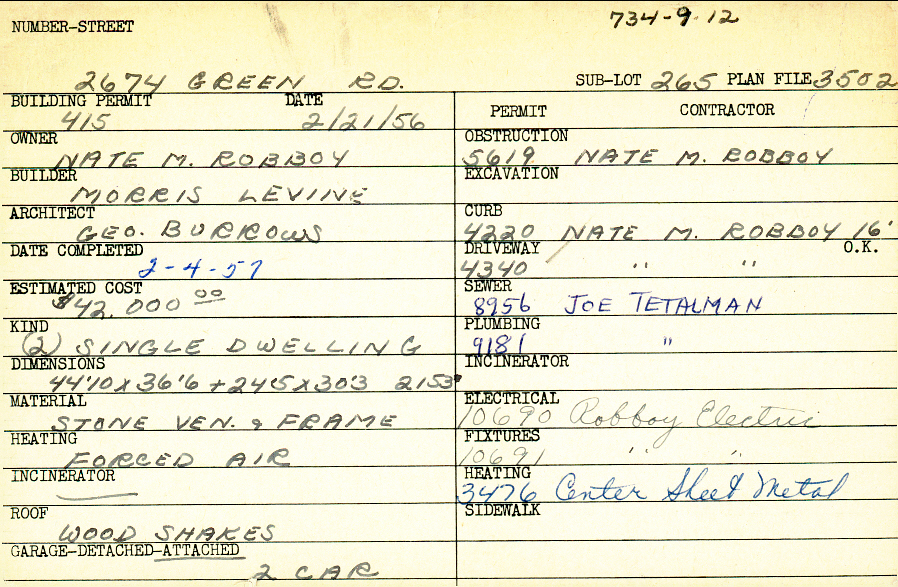 NUMBER-STREET
734-9-12
2674 GREEN RD.
SUB-LOT 265 PLAN FILE 3502
BUILDING PERMIT DATE
415 2/21/56
OWNER
NATE M. ROBBOY
BUILDER
MORRIS LEVINE
ARCHITECT
GEO. BURROWS
DATE COMPLETED
2-4-57
ESTIMATED COST
$42,000 00
KIND
(2) SINGLE DWELLING
DIMENSIONS
44'10 X 36'6 + 24'5 X 30'3 2153"
MATERIAL
STONE VEN. & FRAME
HEATING
FORCED AIR
INCINERATOR
ROOF
WOOD SHAKES
GARAGE-DETACHED-ATTACHED
2 CAR
PERMIT CONTRACTOR
OBSTRUCTION
5619 NATE M. ROBBOY
EXCAVATION
CURB
4220 NATE M. ROBBOY 16'
DRIVEWAY O.K.
4340 " "
SEWER
8956 JOE TETALMAN
PLUMBING
9181 "
INCINERATOR
ELECTRICAL
10690 Robboy Electric
FIXTURES
10691 " "
HEATING
3476 Center Sheet Metal
SIDEWALK